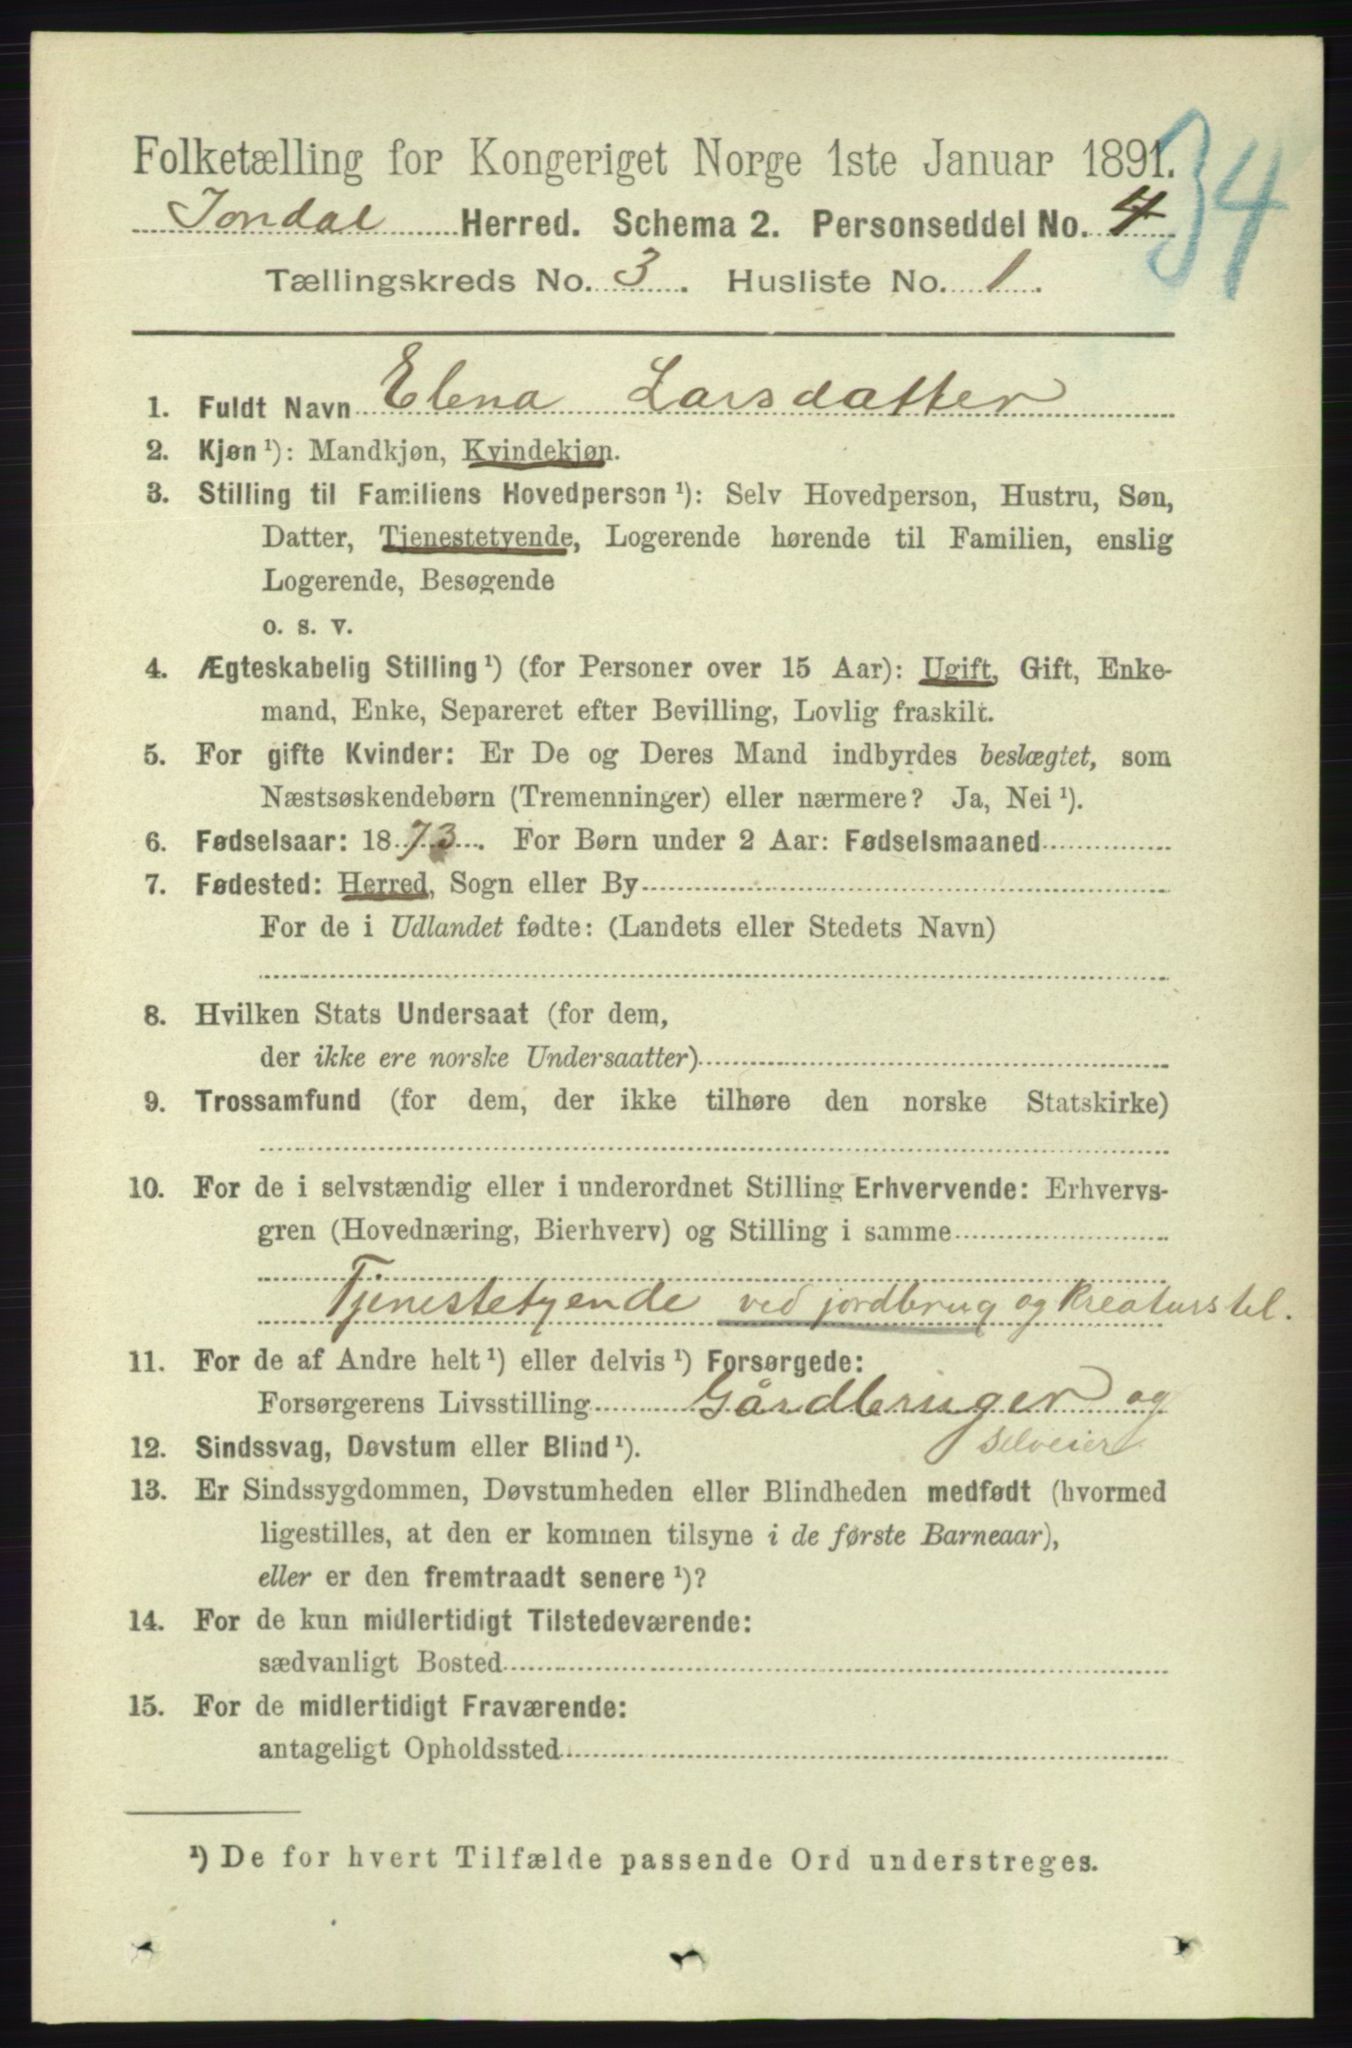 Folketælling for Kongeriget Norge 1ste Januar 1891.
34
Jondal Herred. Schema 2. Personseddel No. 4
Tællingskreds No. 3. Husliste No. 1.
1. Fuldt Navn Elena Larsdatter
2. Kjøn ¹): Mandkjøn, Kvindekjøn.
3. Stilling til Familiens Hovedperson ¹): Selv Hovedperson, Hustru, Søn,
Datter, Tjenestetyende, Logerende hørende til Familien, enslig
Logerende, Besøgende
o. s. v.
4. Ægteskabelig Stilling ¹) (for Personer over 15 Aar): Ugift, Gift, Enke-
mand, Enke, Separeret efter Bevilling, Lovlig fraskilt.
5. For gifte Kvinder: Er De og Deres Mand indbyrdes beslægtet, som
Næstsøskendebørn (Tremenninger) eller nærmere? Ja, Nei ¹).
6. Fødselsaar: 1873. For Børn under 2 Aar: Fødselsmaaned
7. Fødested: Herred, Sogn eller By
For de i Udlandet fødte: (Landets eller Stedets Navn)
8. Hvilken Stats Undersaat (for dem,
der ikke ere norske Undersaatter)
9. Trossamfund (for dem, der ikke tilhøre den norske Statskirke)
10. For de i selvstændig eller i underordnet Stilling Erhvervende: Erhvervs-
gren (Hovednæring, Bierhverv) og Stilling i samme
Tjenestetyende ved jordbrug og Kreaturstel.
11. For de af Andre helt ¹) eller delvis ¹) Forsørgede:
Forsørgerens Livsstilling Gårdbruger og
Selveier
12. Sindssvag, Døvstum eller Blind ¹).
13. Er Sindssygdommen, Døvstumheden eller Blindheden medfødt (hvormed
ligestilles, at den er kommen tilsyne i de første Barneaar),
eller er den fremtraadt senere ¹)?
14. For de kun midlertidigt Tilstedeværende:
sædvanligt Bosted
15. For de midlertidigt Fraværende:
antageligt Opholdssted
¹) De for hvert Tilfælde passende Ord understreges.